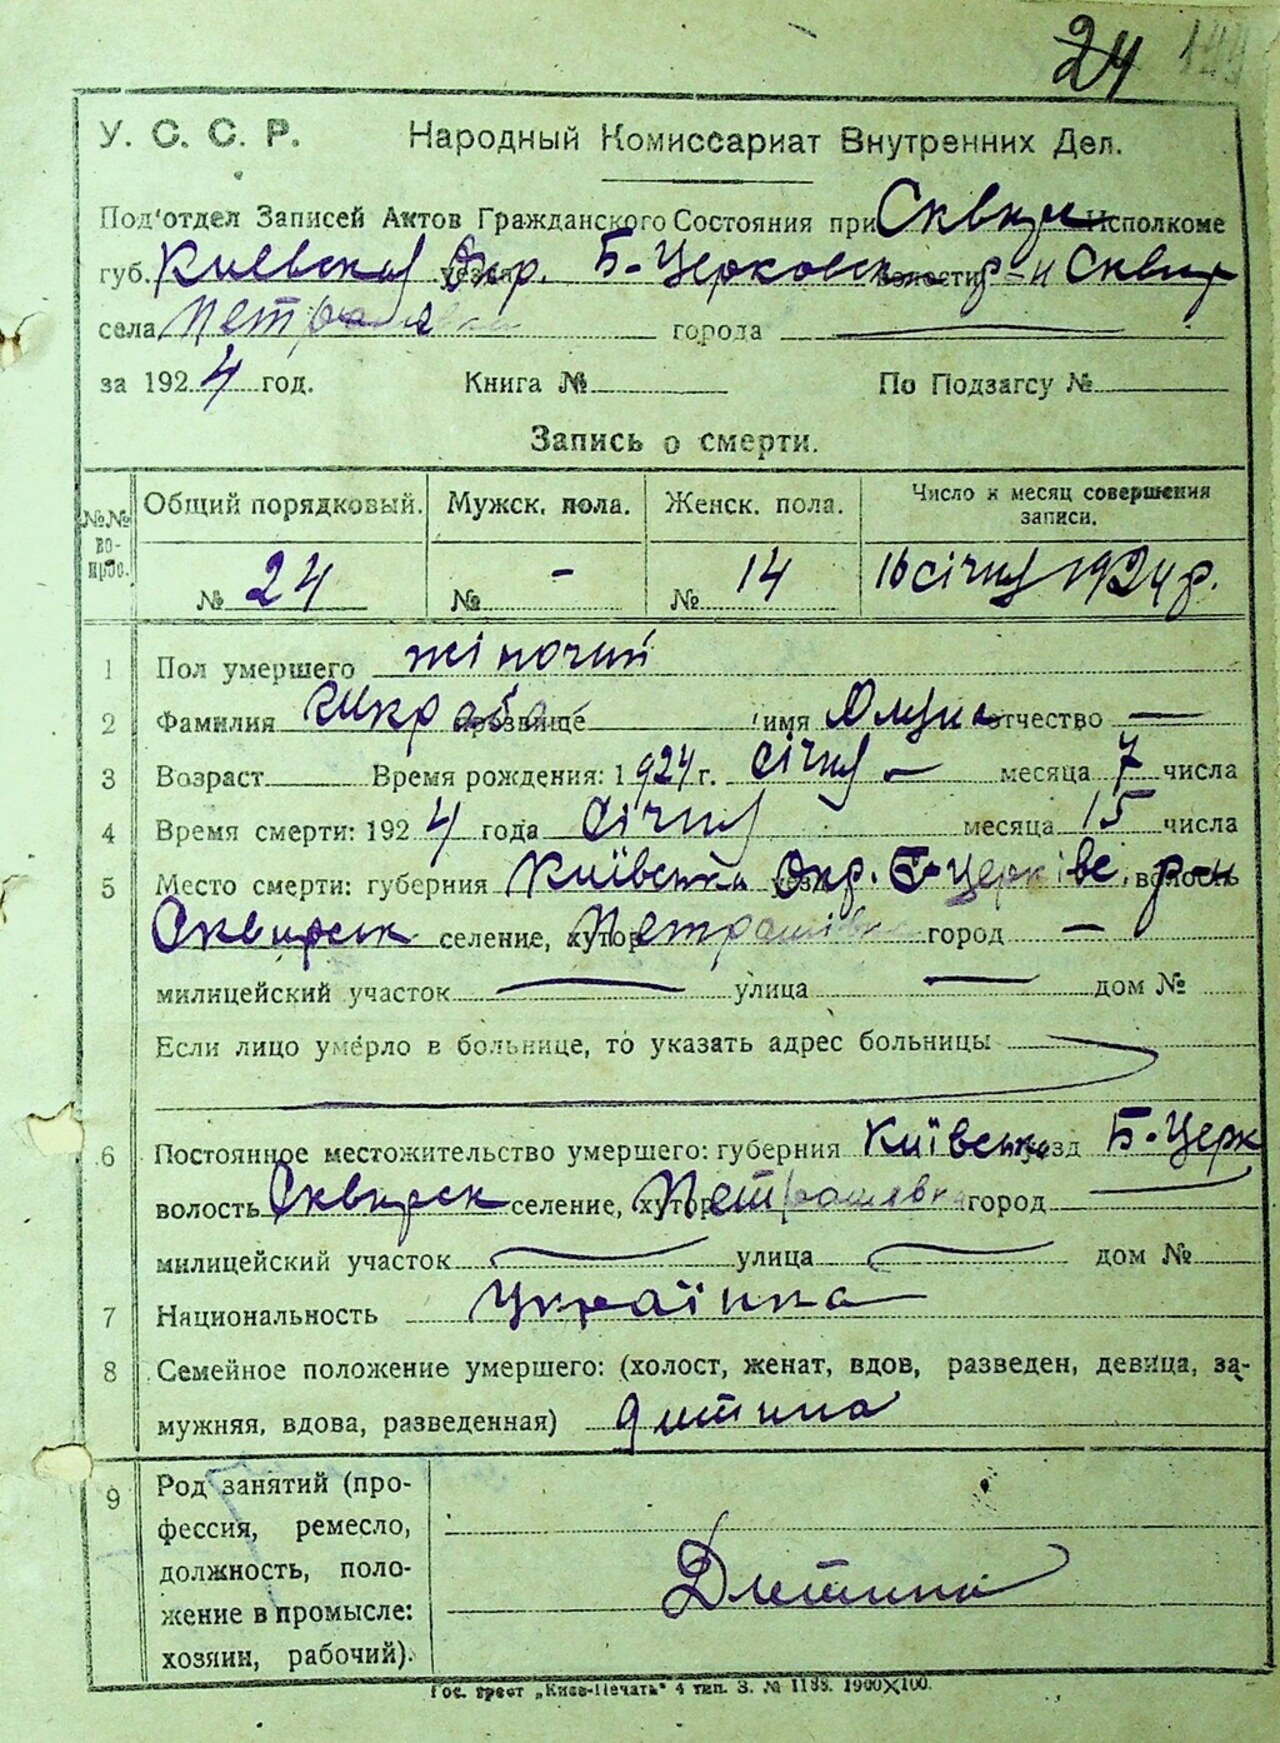 24 144
У. С. С. Р. Народный Комиссариат Внутренних Дел.
Под'отдел Записей Актов Гражданского Состояния при Сквир Исполкоме
губ. Киевская уезд Окр. Б-Церковск волости р-н Сквир
села Петрашівка города
за 1924 год. Книга № По Подзагсу №
Запись о смерти.
№№ вопрос. Общий порядковый. Мужск. пола. Женск. пола. Число и месяц совершения записи.
№ 24 № - № 14 16 січня 1924 р.
1 Пол умершего жіночий
2 Фамилия прозвище имя отчество —
3 Возраст Время рождения: 1924 г. січня — месяца 7 числа
4 Время смерти: 1924 года Січня месяца 15 числа
5 Место смерти: губерния Київська уезд Окр. Б-Церківс. волость р-н
Сквирськ селение, хутор Петрашівка город —
милицейский участок — улица — дом №
Если лицо умерло в больнице, то указать адрес больницы
6 Постоянное местожительство умершего: губерния Київська уезд Б-Церк
волость Сквирск селение, хутор Петрашевка город —
милицейский участок — улица — дом №
7 Национальность Українка
8 Семейное положение умершего: (холост, женат, вдов, разведен, девица, за-
мужняя, вдова, разведенная) дитина
9 Род занятий (про-
фессия, ремесло,
должность, поло-
жение в промысле:
хозяин, рабочий).
Дитина
Гос. трест „Киев-Печать" 4 тип. З. № 1188. 1900×100.